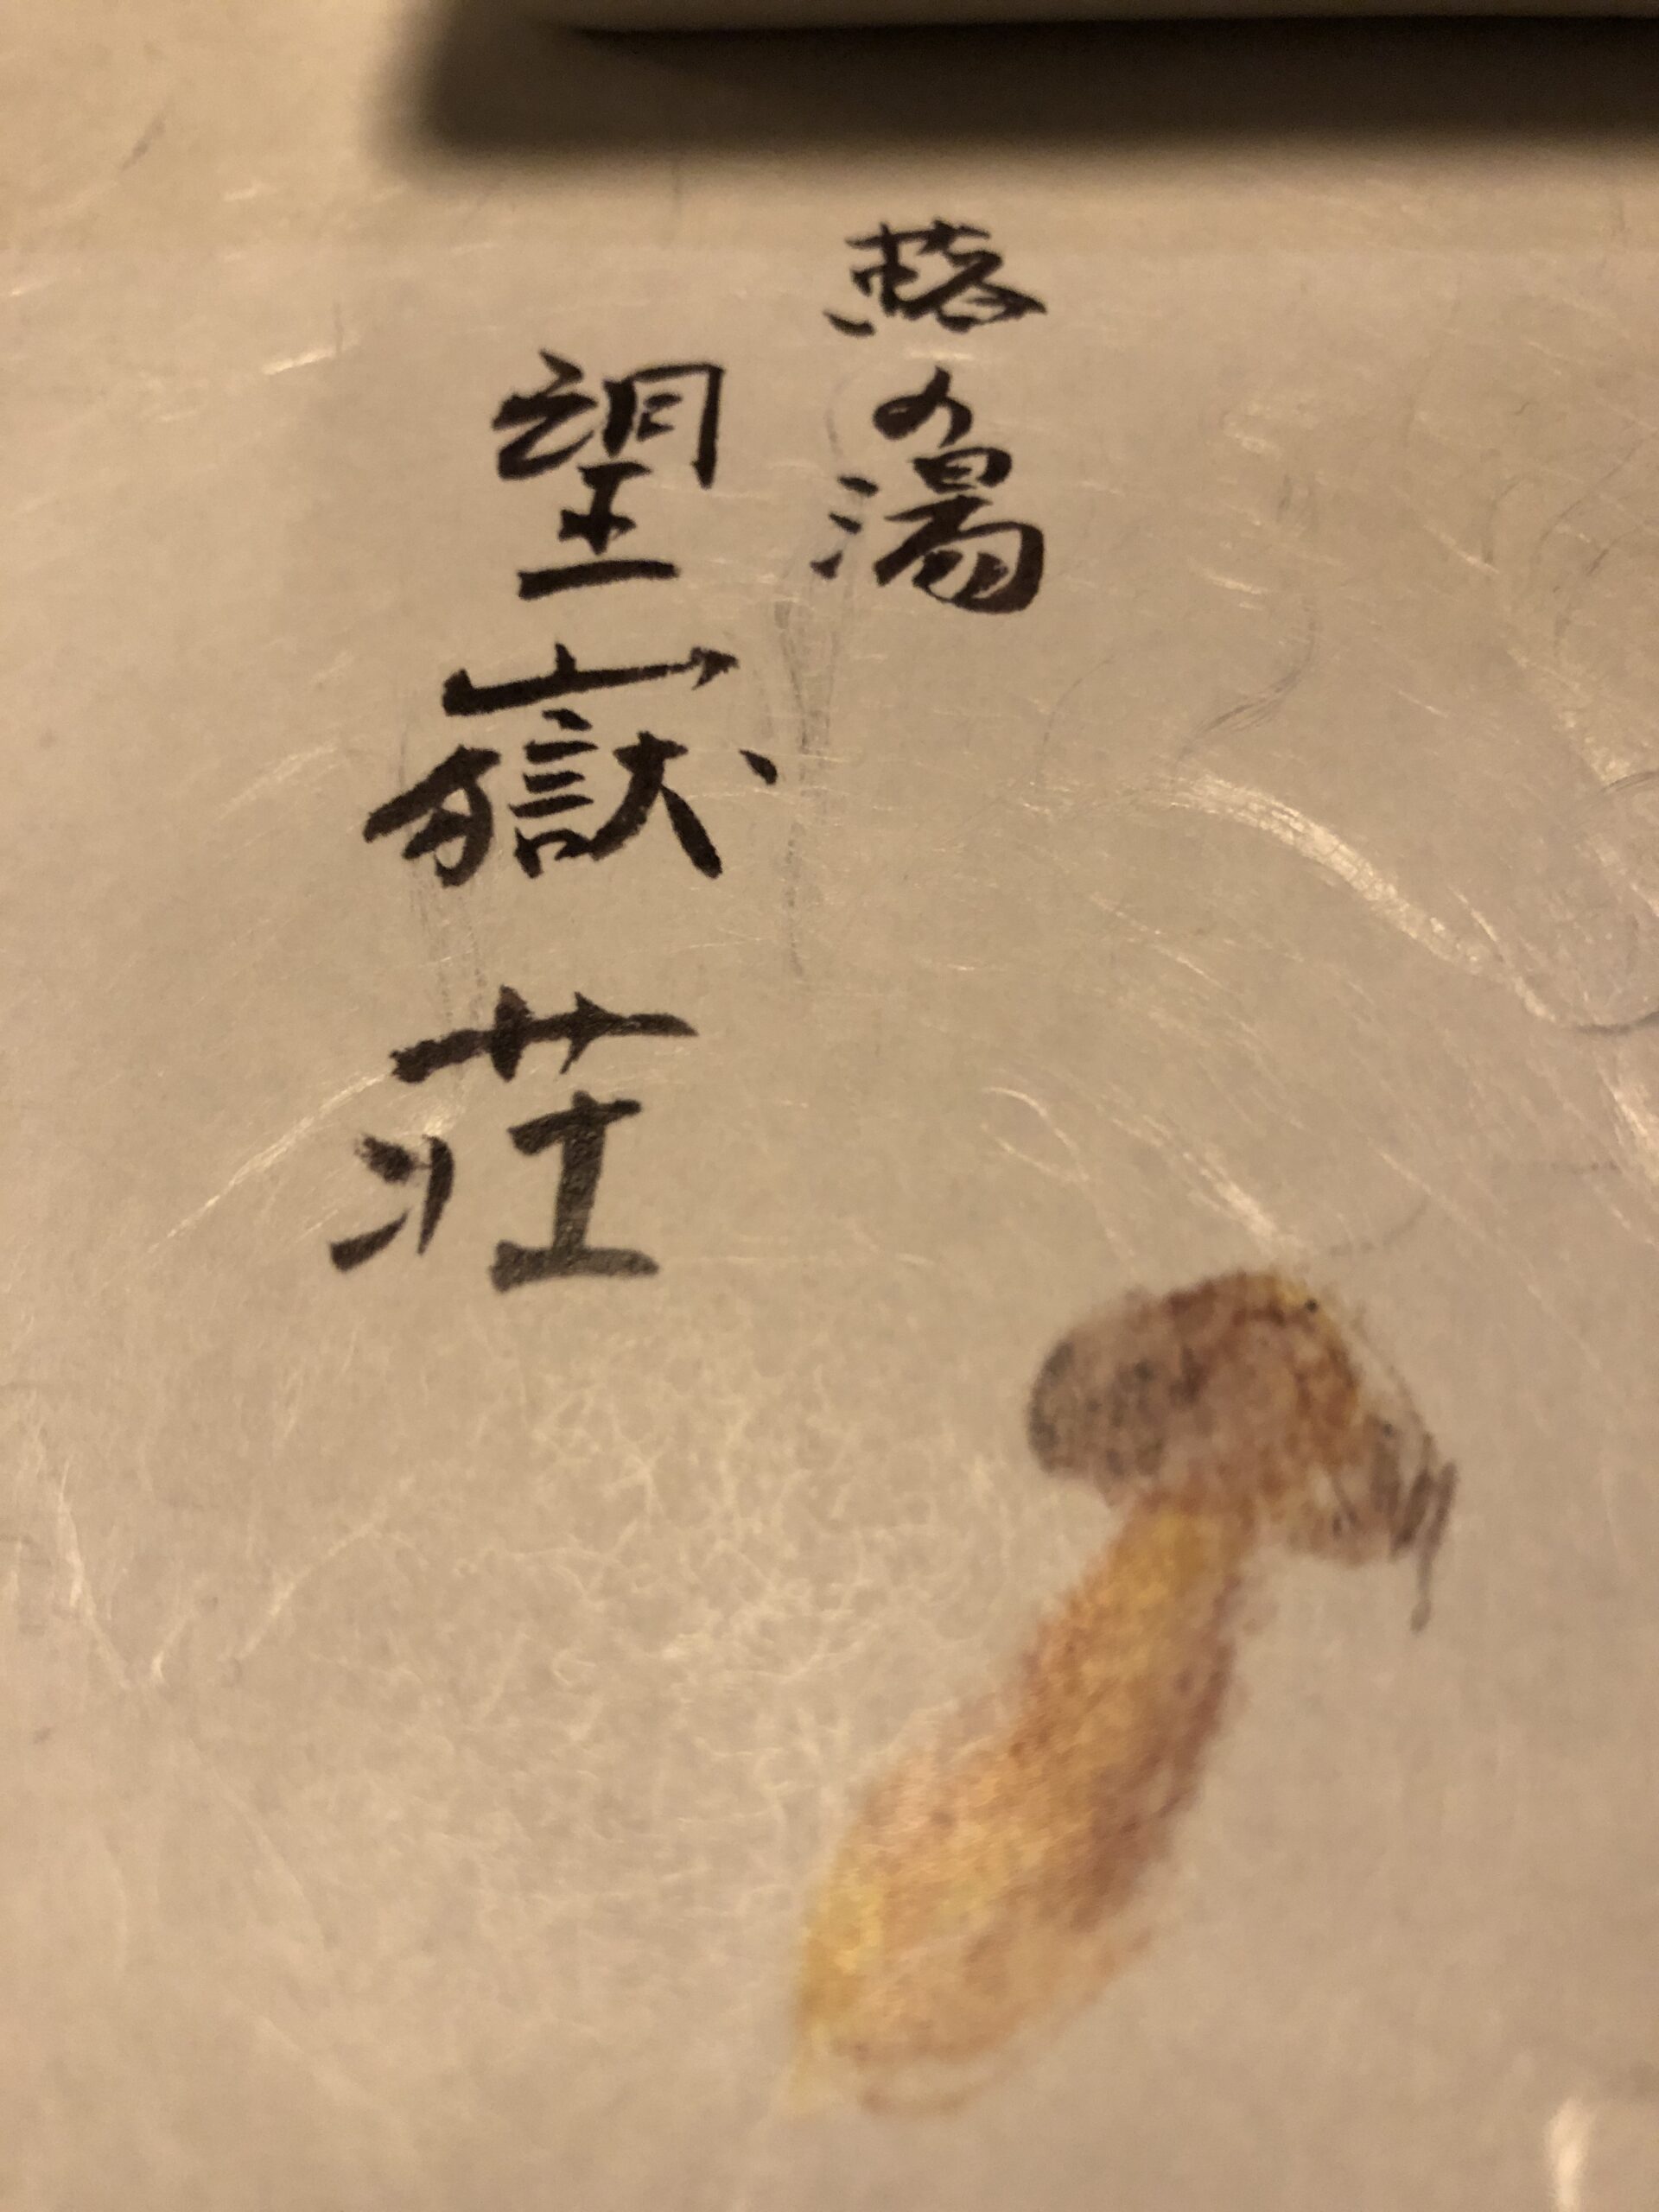 蕗の湯
望嶽荘